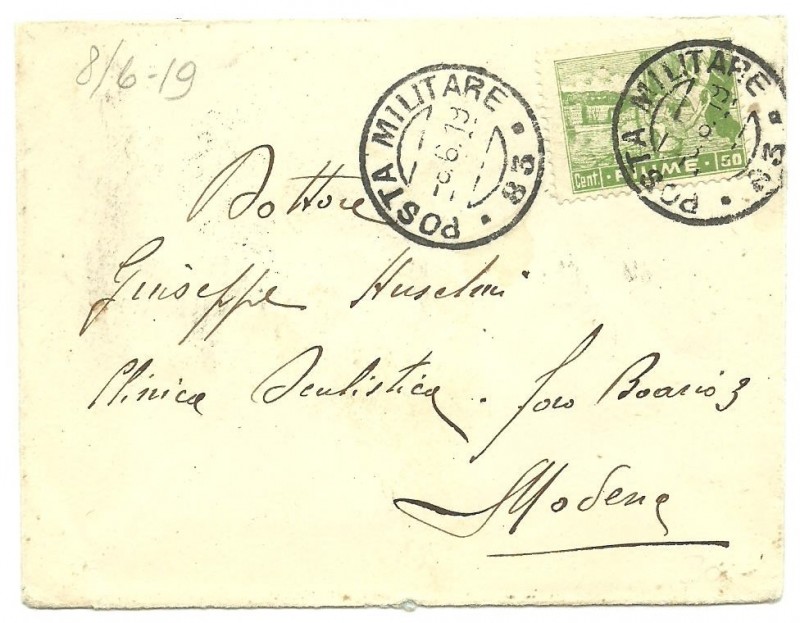 8/6-19
POSTA MILITARE 83
Cent. FIUME 50
POSTA MILITARE 83
Dottore
Giuseppe
Clinica Oculistica. foro Boario 3
Modena